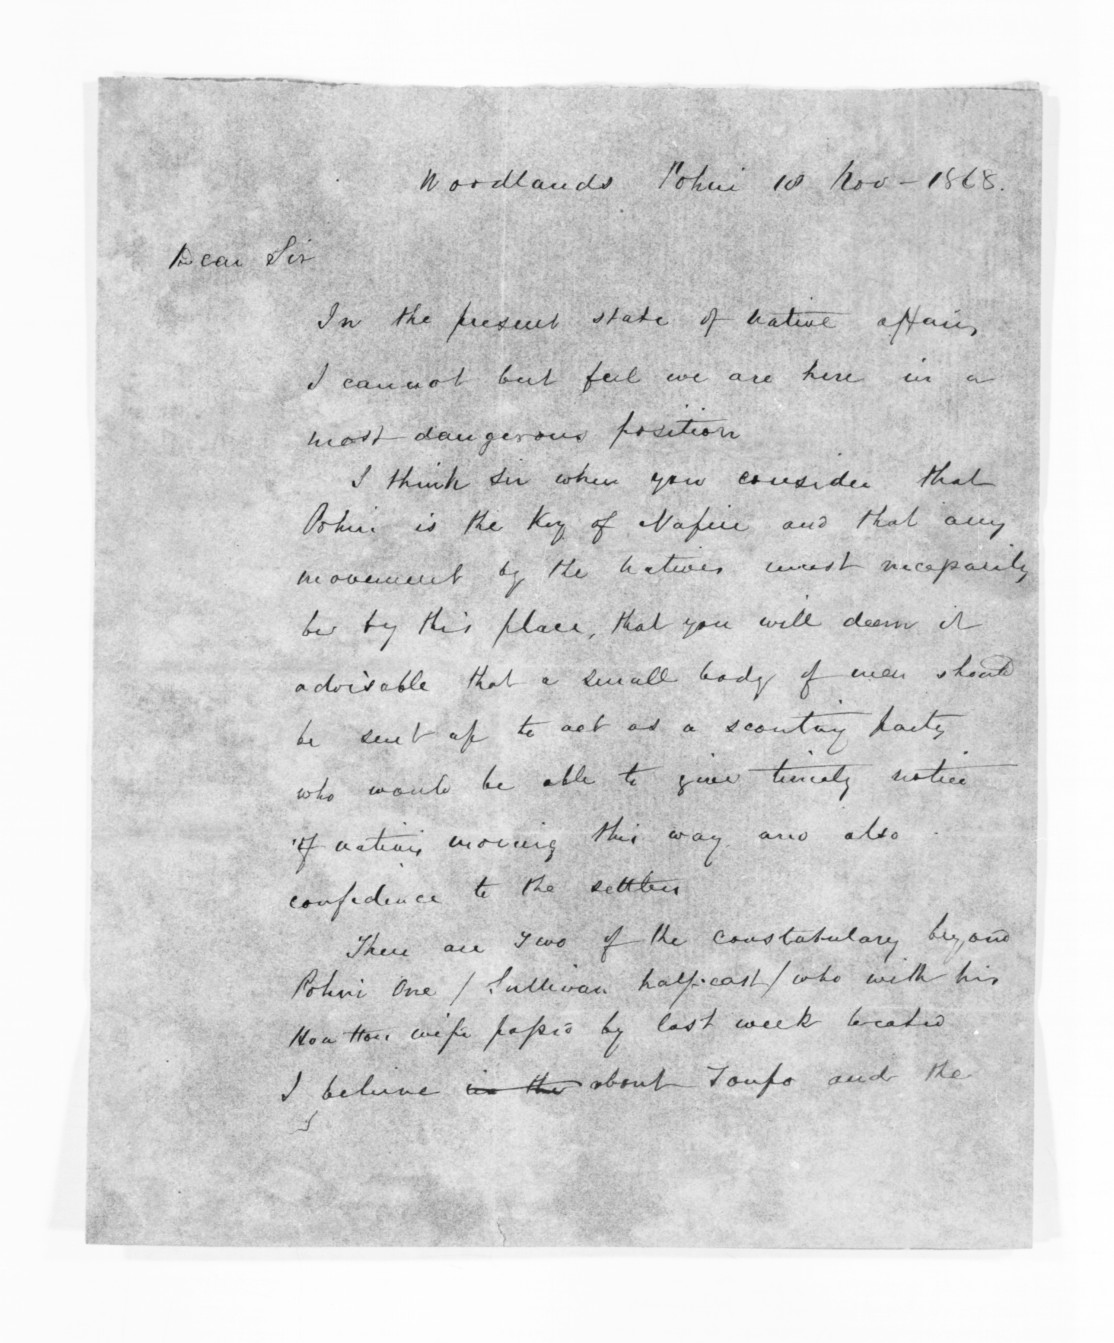 Woodlands Pohui 18 Nov - 1868.
Dear Sir
In the present state of native affairs
I cannot but feel we are here in a
most dangerous position
I think Sir when you consider that
Pohui is the Key of Napier and that any
movement by the Natives must necessarily
be by this place, that you will deem it
advisable that a small body of men should
be sent up to act as a scouting party
who would be able to give timely notice
of natives moving this way and also
confidence to the settlers
There are Two of the constabulary beyond
Pohui One / Sullivan half-cast / who with his
Hau Hau wife passed by last week located
I believe in the about Taupo and the